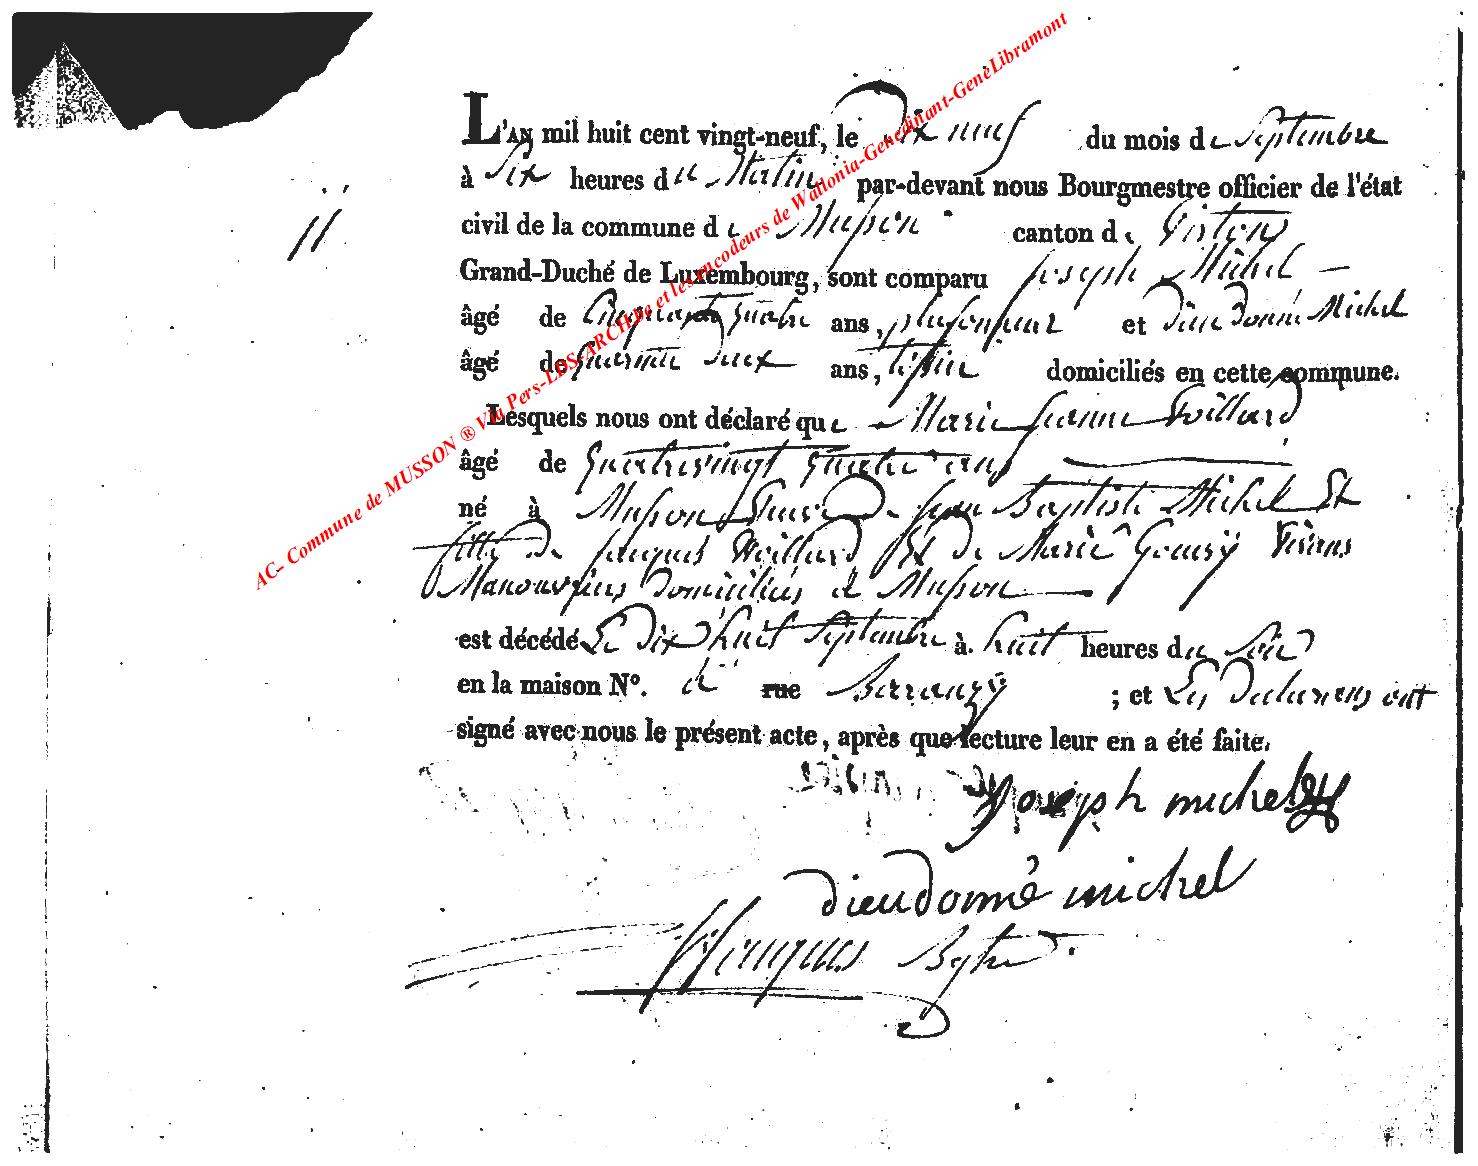 L'AN mil huit cent vingt-neuf, le Dix neuf du mois de Septembre
à Six heures du Matin par-devant nous Bourgmestre officier de l'état
11
civil de la commune de Musson canton de Virton
Grand-Duché de Luxembourg, sont comparu Joseph Michel
âgé de Cinquante Quatre ans, plafonneur et dieudonné Michel
âgé de Quarante Deux ans, tissin domiciliés en cette commune.
Lesquels nous ont déclaré que Marie Jeanne Woillard
âgé de Quatrevingt Quatre ans
né à Musson Veuve De jean Baptiste Michel Et
fille De jacques Woillard Et De Marie Goury Vivans
Manouvriers Domiciliés à Musson
est décédé Le Dix huit Septembre à huit heures du Soir
en la maison N°. à rue Baranzy ; et Les Declarans ont
signé avec nous le présent acte, après que lecture leur en a été faite.
Joseph michel
dieudonné michel
jacques
AC- Commune de MUSSON ® Via Pers-LDS-ARCH.be et les encodeurs de Wallonia-Genedinant-GeneLibramont